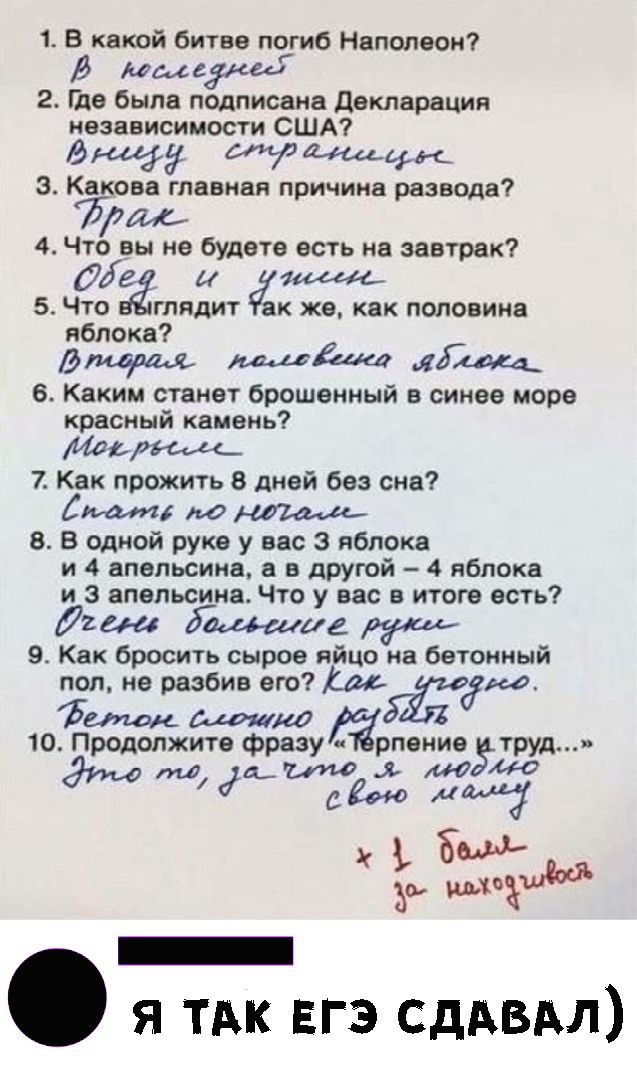 1. В какой битве погиб Наполеон?
В последней
2. Где была подписана Декларация
независимости США?
Внизу страницы
3. Какова главная причина развода?
Брак
4. Что вы не будете есть на завтрак?
Обед и ужин
5. Что выглядит так же, как половина
яблока?
Вторая половина яблока
6. Каким станет брошенный в синее море
красный камень?
Мокрым
7. Как прожить 8 дней без сна?
Спать по ночам
8. В одной руке у вас 3 яблока
и 4 апельсина, а в другой – 4 яблока
и 3 апельсина. Что у вас в итоге есть?
Очень большие руки
9. Как бросить сырое яйцо на бетонный
пол, не разбив его? Как угодно.
Бетон сложно разбить
10. Продолжите фразу «Терпение и труд...»
Это то, за что я люблю
свою маму
+ 1 балл
за находчивость
Я ТАК ЕГЭ СДАВАЛ)